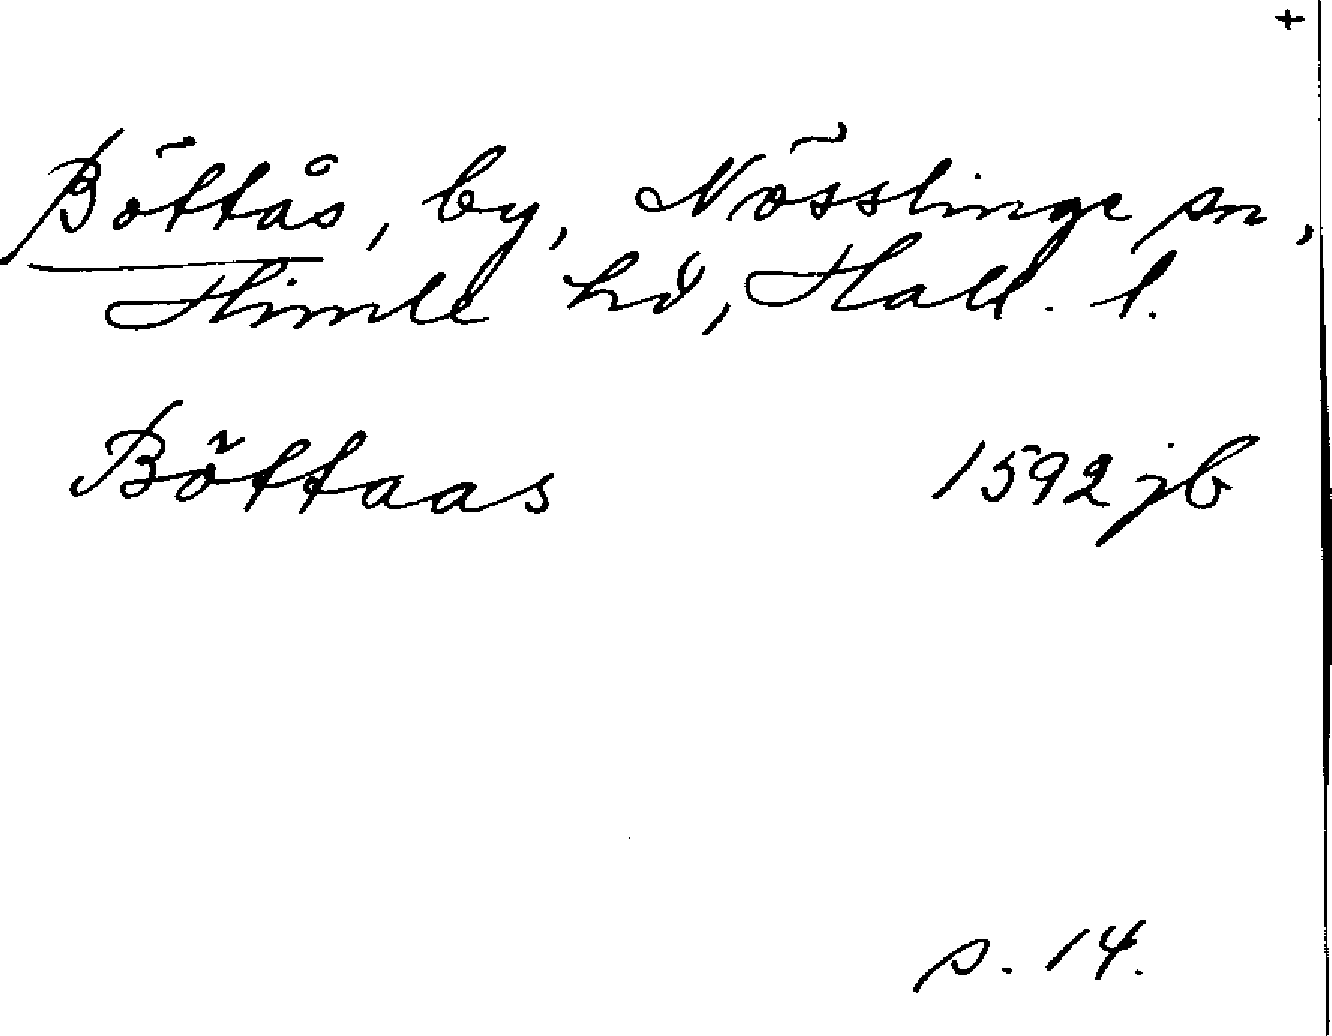 +
Böttås, by, Nösslinge sn,
Himle hd, Hall. l.
Böttaas 1592 jb
s. 14.